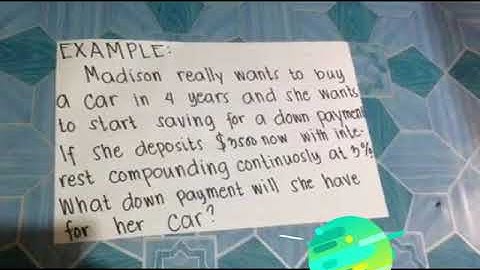 EXAMPLE:
Madison really wants to buy
a car in 4 years and she wants
to start saving for a down payment
If she deposits $3500 now with inte-
rest compounding continuosly at 3%
What down payment will she have
for her car?